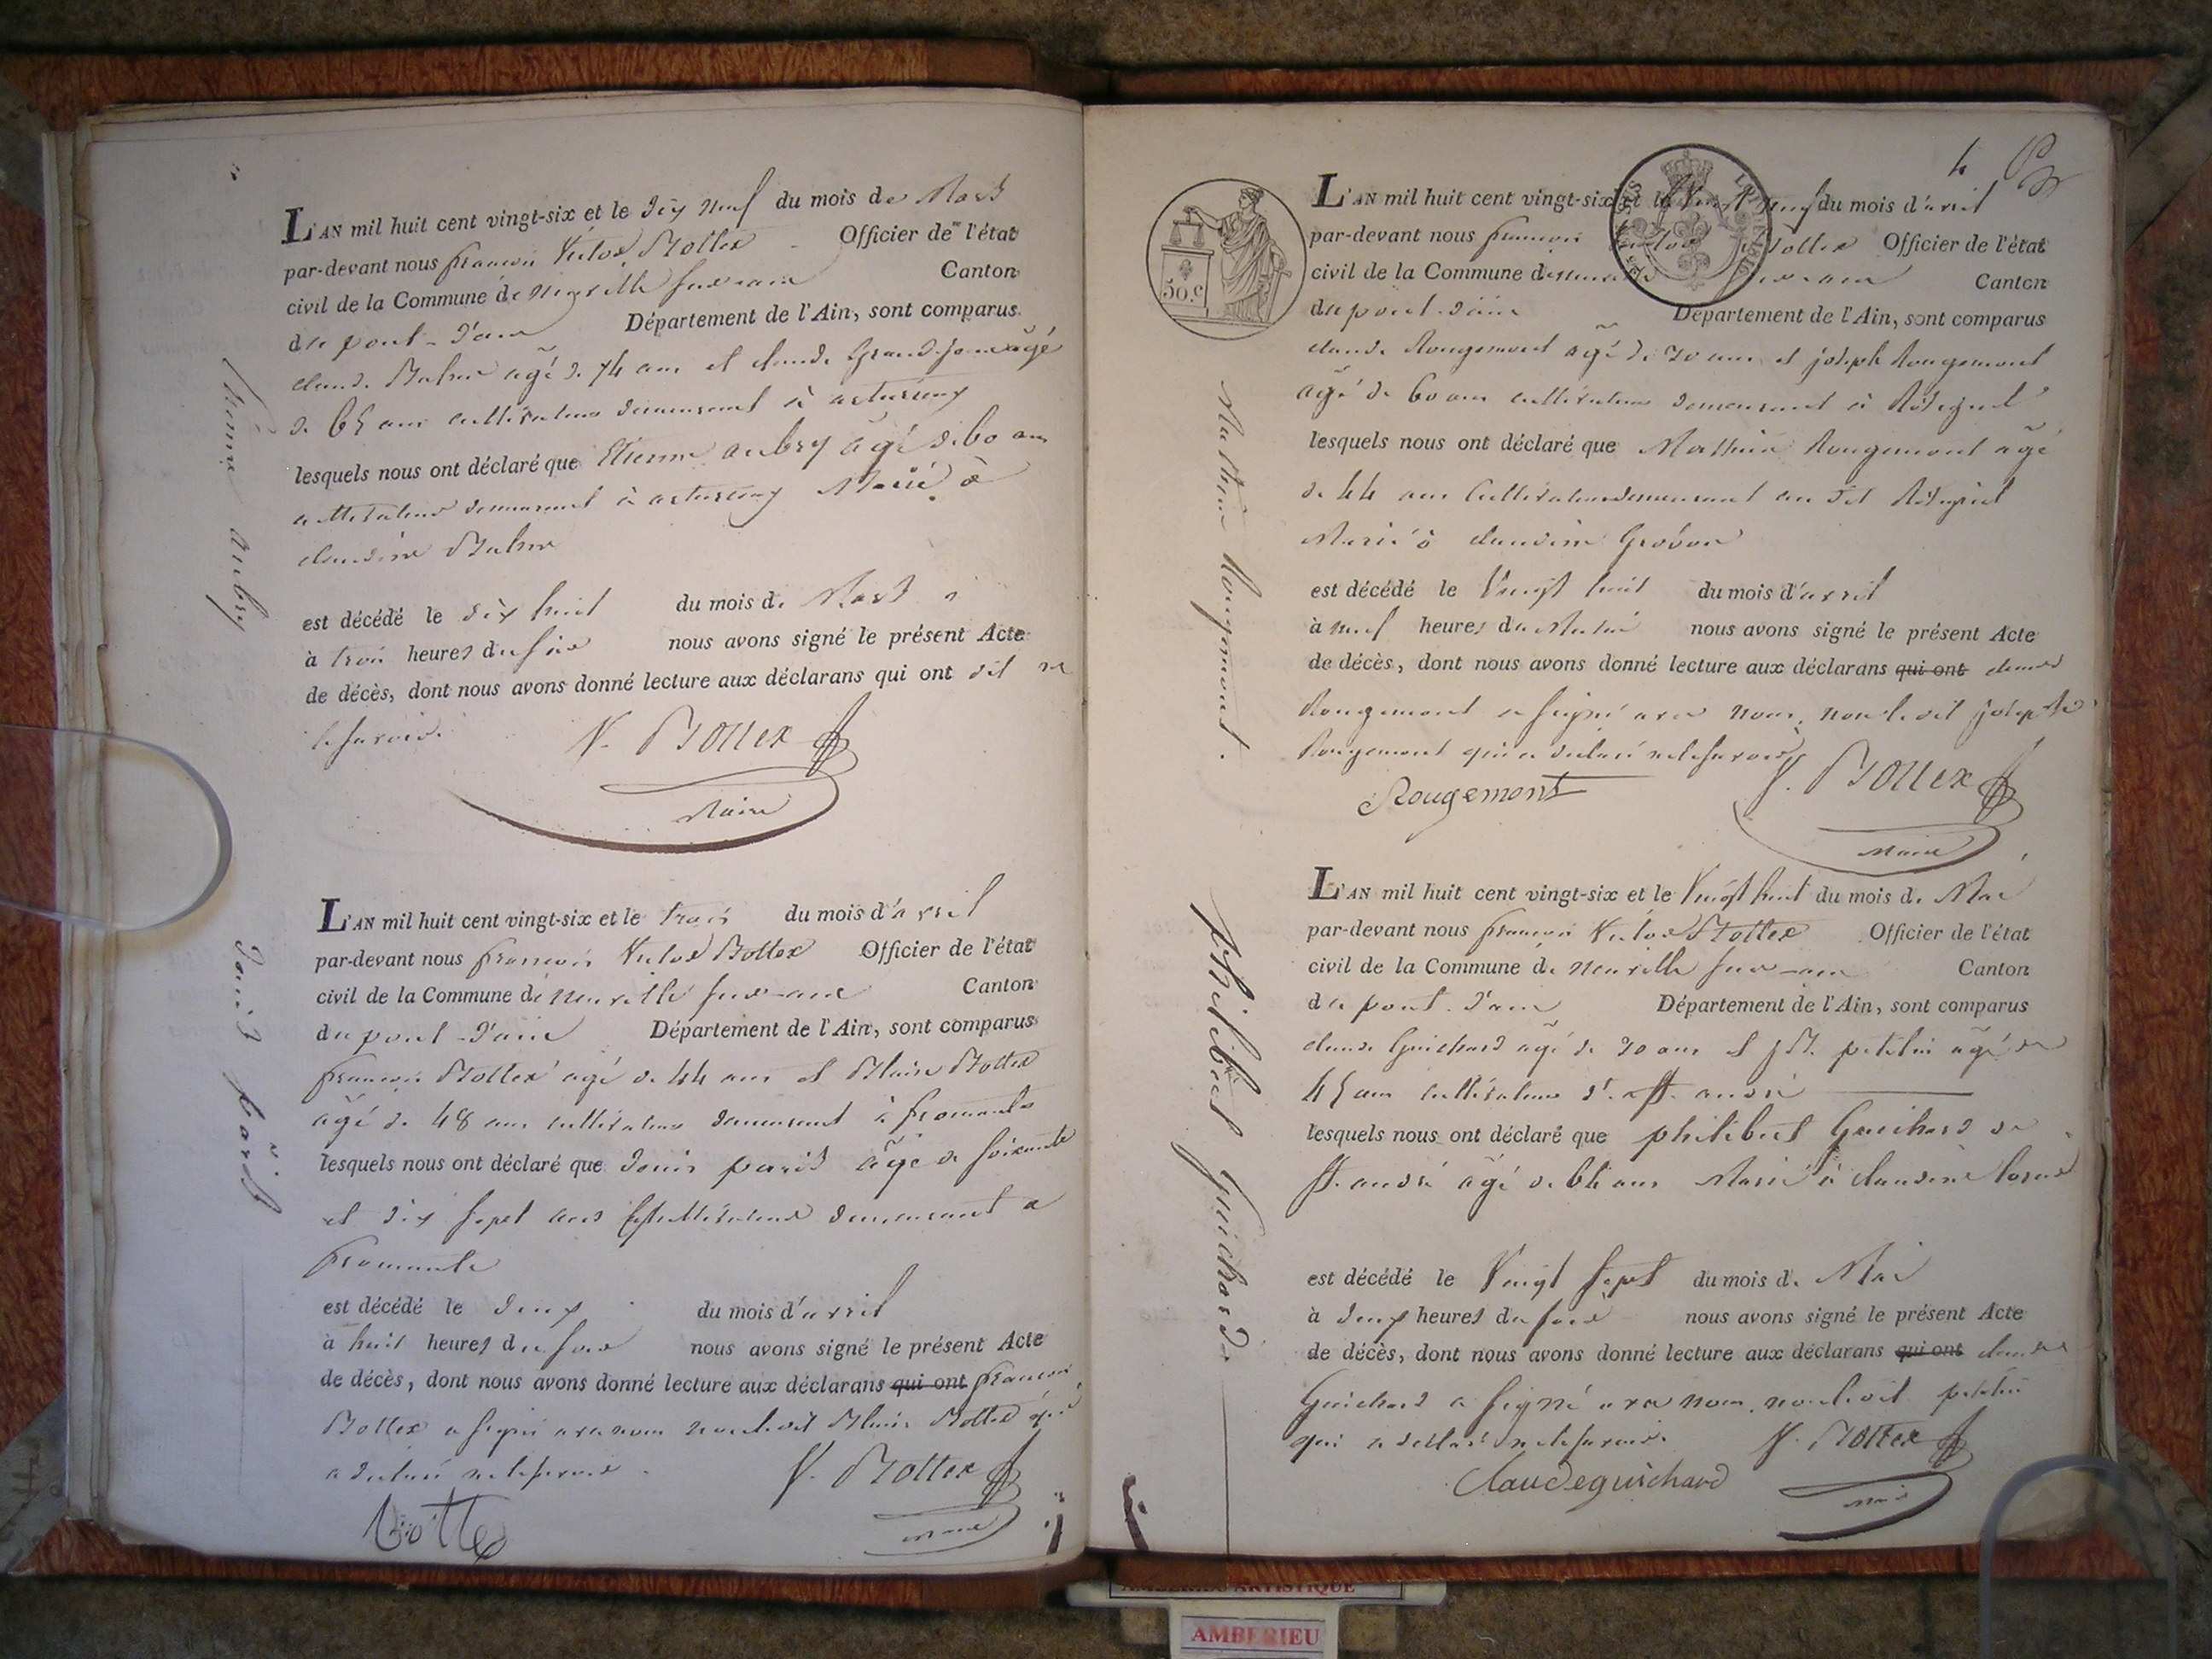 Étienne aubry
L'AN mil huit cent vingt-six et le dix neuf du mois de Mars
par-devant nous françois Victor Bottex Officier de l'état
civil de la Commune de neuville sur ain Canton
du pont-d'ain Département de l'Ain, sont comparus
claude Buhno agé de 74 ans et claude Grandjean agé
de 65 ans cultivateurs demeurant à
lesquels nous ont déclaré que Etienne aubry agé de 60 ans
cultivateur demeurant à Marié à
claudine
est décédé le dix huit du mois de Mars
à trois heures du soir nous avons signé le présent Acte
de décès, dont nous avons donné lecture aux déclarans qui ont dit ne
le savoir.
V. Bottex
Maire
denis paris
L'AN mil huit cent vingt-six et le trois du mois d'avril
par-devant nous françois Victor Bottex Officier de l'état
civil de la Commune de neuville sur-ain Canton
du pont-d'ain Département de l'Ain, sont comparus
françois Bottex agé de 44 ans et Blaise Bottex
agé de 48 ans cultivateurs demeurant à fromente
lesquels nous ont déclaré que denis paris agé de soixante
et dix sept ans cultivateur demeurant a
fromente
est décédé le deux du mois d'avril
à huit heures du soir nous avons signé le présent Acte
de décès, dont nous avons donné lecture aux déclarans qui ont françois
Bottex a signé avec nous non ledit Blaise Bottex qui
a declaré ne le savoir.
V. Bottex
Maire
4
50.c
Mathieu Rougemont.
L'AN mil huit cent vingt-six et le Vingt neuf du mois d'avril
par-devant nous françois Victor Bottex Officier de l'état
civil de la Commune de neuville sur-ain Canton
du pont-d'ain Département de l'Ain, sont comparus
claude Rougemont agé de 70 ans et joseph Rougemont
agé de 60 ans cultivateurs demeurant à
lesquels nous ont déclaré que Mathieu Rougemont agé
de 44 ans Cultivateur demeurant au dit
Marié à claudine
est décédé le Vingt huit du mois d'avril
à neuf heures du Matin nous avons signé le présent Acte
de décès, dont nous avons donné lecture aux déclarans qui ont claude
Rougemont a signé avec nous, non le dit joseph
Rougemont qui a declaré ne le savoir
Rougemont
V. Bottex
Maire
philibert Guichard
L'AN mil huit cent vingt-six et le Vingt huit du mois de Mai
par-devant nous françois Victor Bottex Officier de l'état
civil de la Commune de neuville sur-ain Canton
du pont-d'ain Département de l'Ain, sont comparus
claude Guichard agé de 30 ans et JB. petetin agé de
45 ans cultivateurs de St. andré
lesquels nous ont déclaré que philibert Guichard de
St. andré agé de 64 ans Marié à claudine
est décédé le Vingt sept du mois de Mai
à deux heures du soir nous avons signé le présent Acte
de décès, dont nous avons donné lecture aux déclarans qui ont claude
Guichard a signé avec nous, non ledit petetin
qui a declaré ne le savoir.
V. Bottex
Claude guichard
Maire
AMBERIEU ARTISTIQUE
AMBERIEU